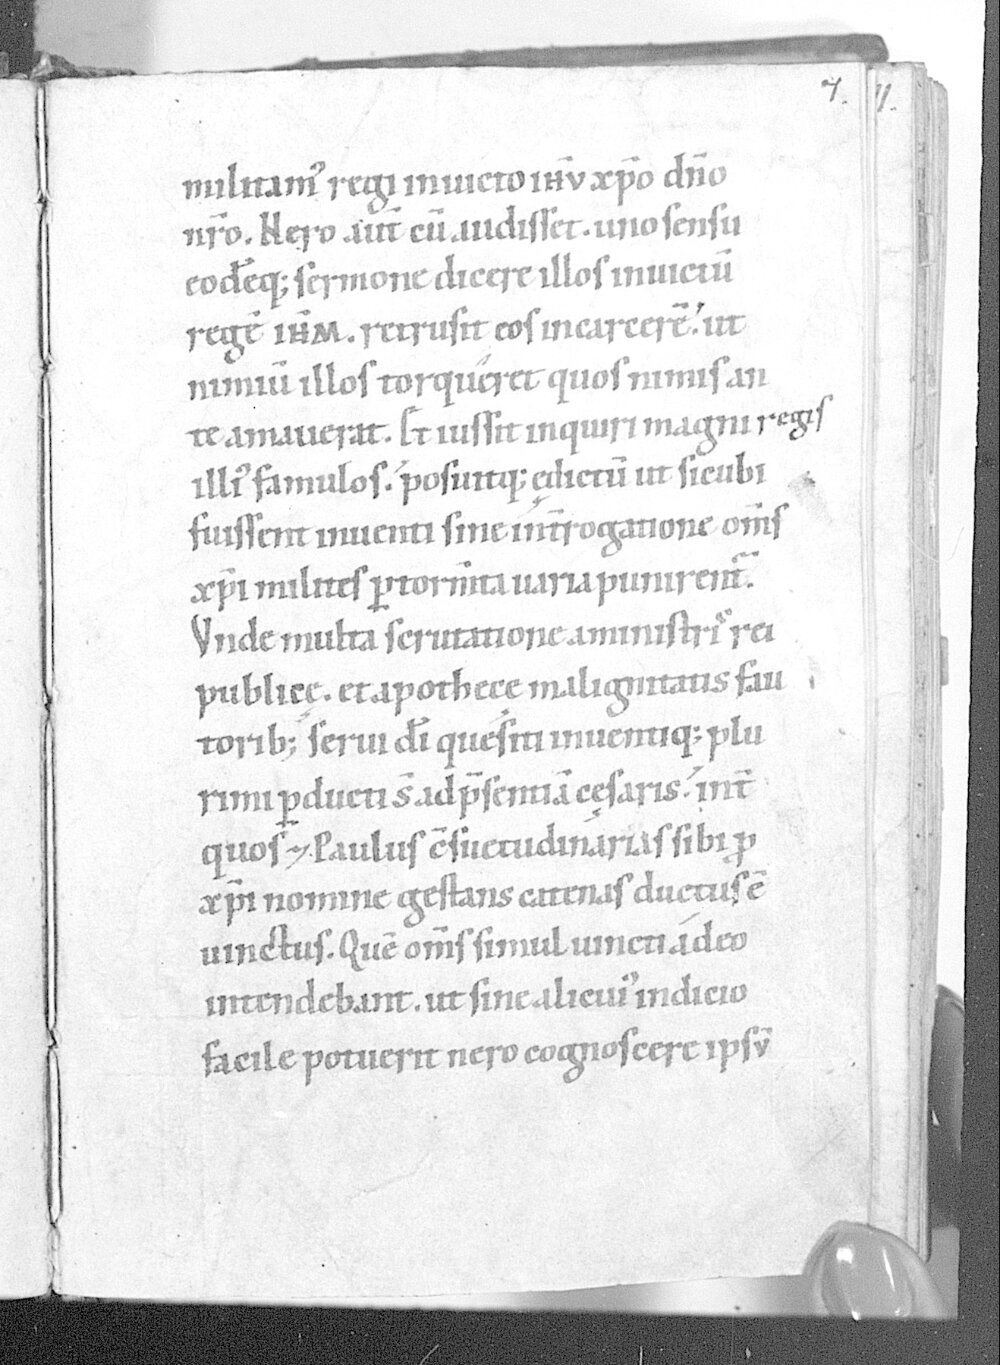 7. 11.
militamꝰ regi inuicto ihv̄ xp̄o dn̄o
nr̄o. Nero aut̄ cū audisset. uno sensu
eodēq; sermone dicere illos inuictū
regē ihm̄. retrusit eos in carcerē. ut
nimiū illos torqueret quos nimis an
te amauerat. Et iussit inquiri magni regis
illiꝰ famulos. posuitq; ędictū ut sicubi
fuissent inuenti sine int̄rogatione om̄s
xp̄i milites ꝑ torm̄ta uaria punirent̄.
Vnde multa scrutatione a ministris rei
publicę. et apothece malignitatis fau
torib; serui dī quęsiti inuentiq; plu
rimi ꝑducti s̄ ad p̄sentiā cęsaris. int̄
quos ⁊ Paulus c̄suetudinarias sibi ꝓ
xp̄i nomine gestans catenas ductus ē
uinctus. Quē om̄s simul uincti adeo
intendebant. ut sine alicuiꝰ indicio
facile potuerit nero cognoscere ipsū